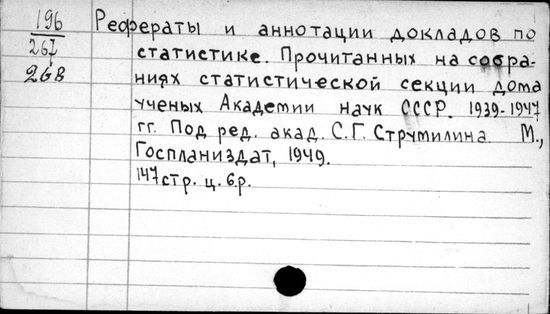 196 Рефераты и аннотации докладов по
267 статистике. Прочитанных на собра-
268 ниях статистической секции дома
ученых Академии наук СССР. 1939-1947
гг. Под ред. акад. С.Г. Струмилина. М.,
Госпланиздат, 1949.
147 стр. ц. 6 р.